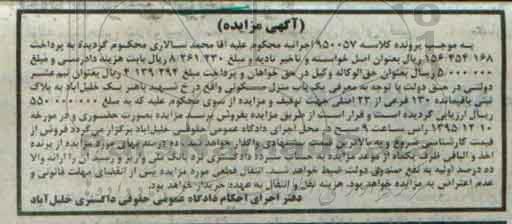 (آگهی مزایده)
به موجب پرونده کلاسه ۹۵۰۰۵۷ اجرائیه محکوم علیه آقا محمد سالاری محکوم گردیده به پرداخت
۱۵۶/۳۵۴/۱۶۸ ریال بعنوان اصل خواسته و تاخیر تادیه و مبلغ ۸/۲۶۱/۲۳۰ ریال بابت هزینه دادرسی و مبلغ
۵/۰۰۰/۰۰۰ ریال بعنوان حق الوکاله وکیل در حق خواهان و پرداخت مبلغ ۴/۱۳۹/۲۹۲ ریال بعنوان نیم عشر
دولتی در حق دولت با توجه به معرفی یک باب منزل مسکونی واقع در خ شهید باهنر یک خلیل آباد به پلاک
ثبتی باقیمانده ۱۳۰ فرعی از ۲۲ اصلی جهت توقیف و مزایده از سوی محکوم علیه که به مبلغ ۵۵۰/۰۰۰/۰۰۰
ریال ارزیابی گردیده است و قرار است از طریق مزایده بفروش برسد مزایده بصورت حضوری و در مورخه
۱۳۹۵/۱۲/۱۰ راس ساعت ۹ صبح در محل اجرای دادگاه عمومی حقوقی خلیل آباد برگزار می گردد فروش از
قیمت کارشناسی شروع و به بالاترین قیمت پیشنهادی واگذار خواهد شد. ده درصد بهای مورد مزایده از برنده
اخذ و الباقی ظرف یکماه از موعد مزایده به حساب سپرده دادگستری نزد بانک ملی واریز و رسید آن را ارائه والا
ده درصد اولیه به نفع صندوق دولت ضبط خواهد شد. انتقال قطعی مورد مزایده پس از انقضای مهلت قانونی و
عدم اعتراض به مزایده خواهد بود. هزینه نقل و انتقال به عهده خریدار خواهد بود.
دفتر اجرای احکام دادگاه عمومی حقوقی دادگستری خلیل آباد